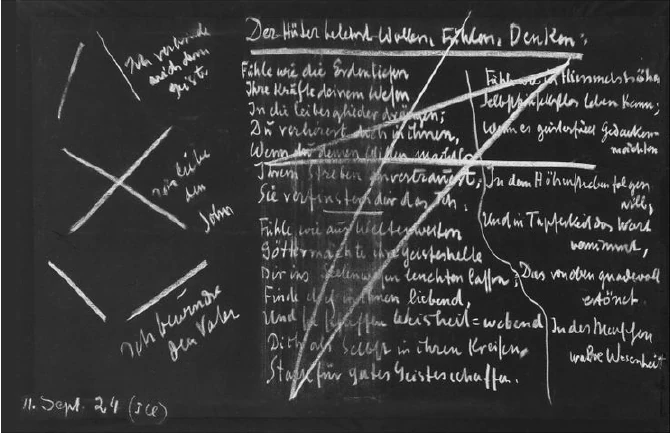 Ich verbinde
mich dem
Geist
ich liebe
den
Sohn
Ich bewundre
den Vater
11. Sept. 24
Der Hüter belehrt Wollen, Fühlen, Denken:
Fühle wie die Erdentiefen
Ihre Kräfte deinem Wesen
In die Leibesglieder drängen;
Du verlierest dich in ihnen,
Wenn du deinen Willen machtlos
Ihrem Streben anvertrauest;
Sie verfinstern dir das Ich.
Fühle wie aus Weltenweiten
Göttermächte ihre Geisteshelle
Dir ins Seelenwesen leuchten lassen;
Finde dich in ihnen liebend,
Und sie schaffen Weisheit=webend
Dich als Selbst in ihren Kreisen
Stark für gutes Geistesschaffen.
Fühle wie in Himmelshöhen
Selbstsein selbstlos leben kann,
Wenn es geisterfüllt Gedanken-
mächten
In dem Höhenstreben folgen
will,
Und in Tapferkeit das Wort
vernimmt,
Das von oben gnadevoll
ertönet
In der Menschen
wahre Wesenheit